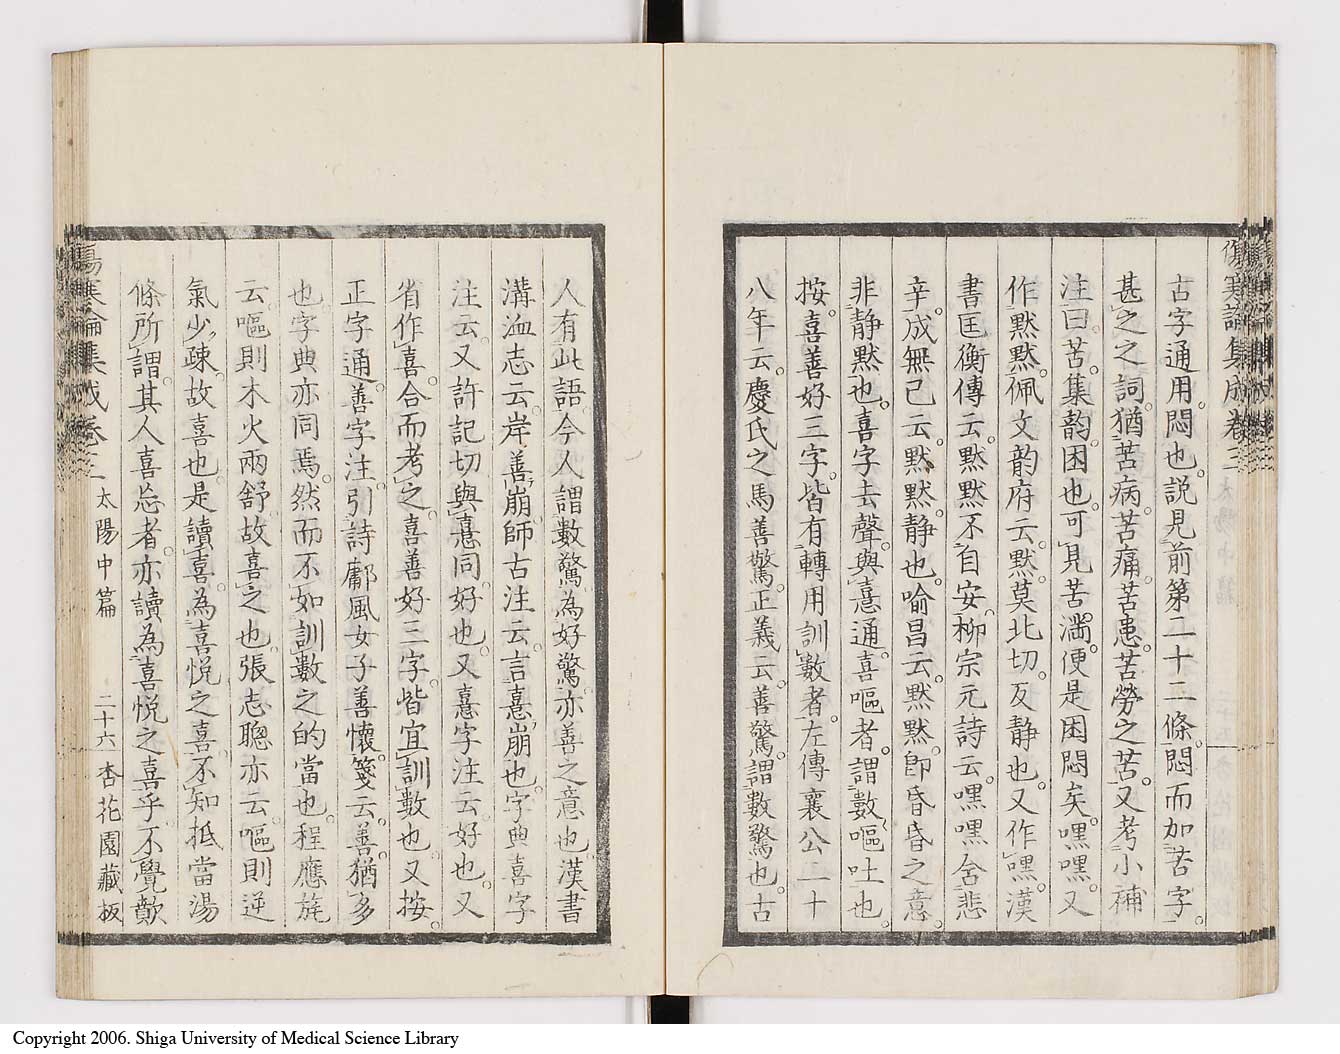 古字通用。悶也。説見前第二十二條。悶而加苦字。
甚之之詞。猶苦病。苦痛。苦患。苦勞之苦。又考小補
注曰。苦集韵困也。可見苦満便是困悶矣。嘿嘿又
作黙黙。佩文韵府云。黙。莫北切。反静也。又作嘿。漢
書匡衡傳云。黙黙不自安。柳宗元詩云。嘿嘿舍悲
辛。成無已云。黙黙。静也。喻昌云。黙黙。即昏昏之意。
非静黙也。喜字去聲。與憙通。喜嘔者。謂數嘔吐也。
按。喜善好三字。皆有轉用訓數者。左傳襄公二十
八年云。慶氏之馬善驚。正義云。善驚。謂數驚也。古
人有此語。今人謂數驚為好驚。亦善之意也。漢書
溝洫志云。岸善崩。師古注云。言憙崩也。字典喜字
注云。又許記切。與憙同。好也。又憙字注云。好也。又
省作喜。合而考之。喜善好三字。皆宜訓數也。又按。
正字通。善字注。引詩鄘風女子善懷。箋云。善。猶多
也。字典亦同焉。然而不如訓數之的當也。程應旄
云。嘔則木火兩舒。故喜之也。張志聰亦云。嘔則逆
氣少疎。故喜也。是讀喜為喜悦之喜。不知抵當湯
條所謂其人喜忘者。亦讀為喜悦之喜乎。不覺歒
傷寒論集成卷三 太陽中篇 二十六 杏花園藏板